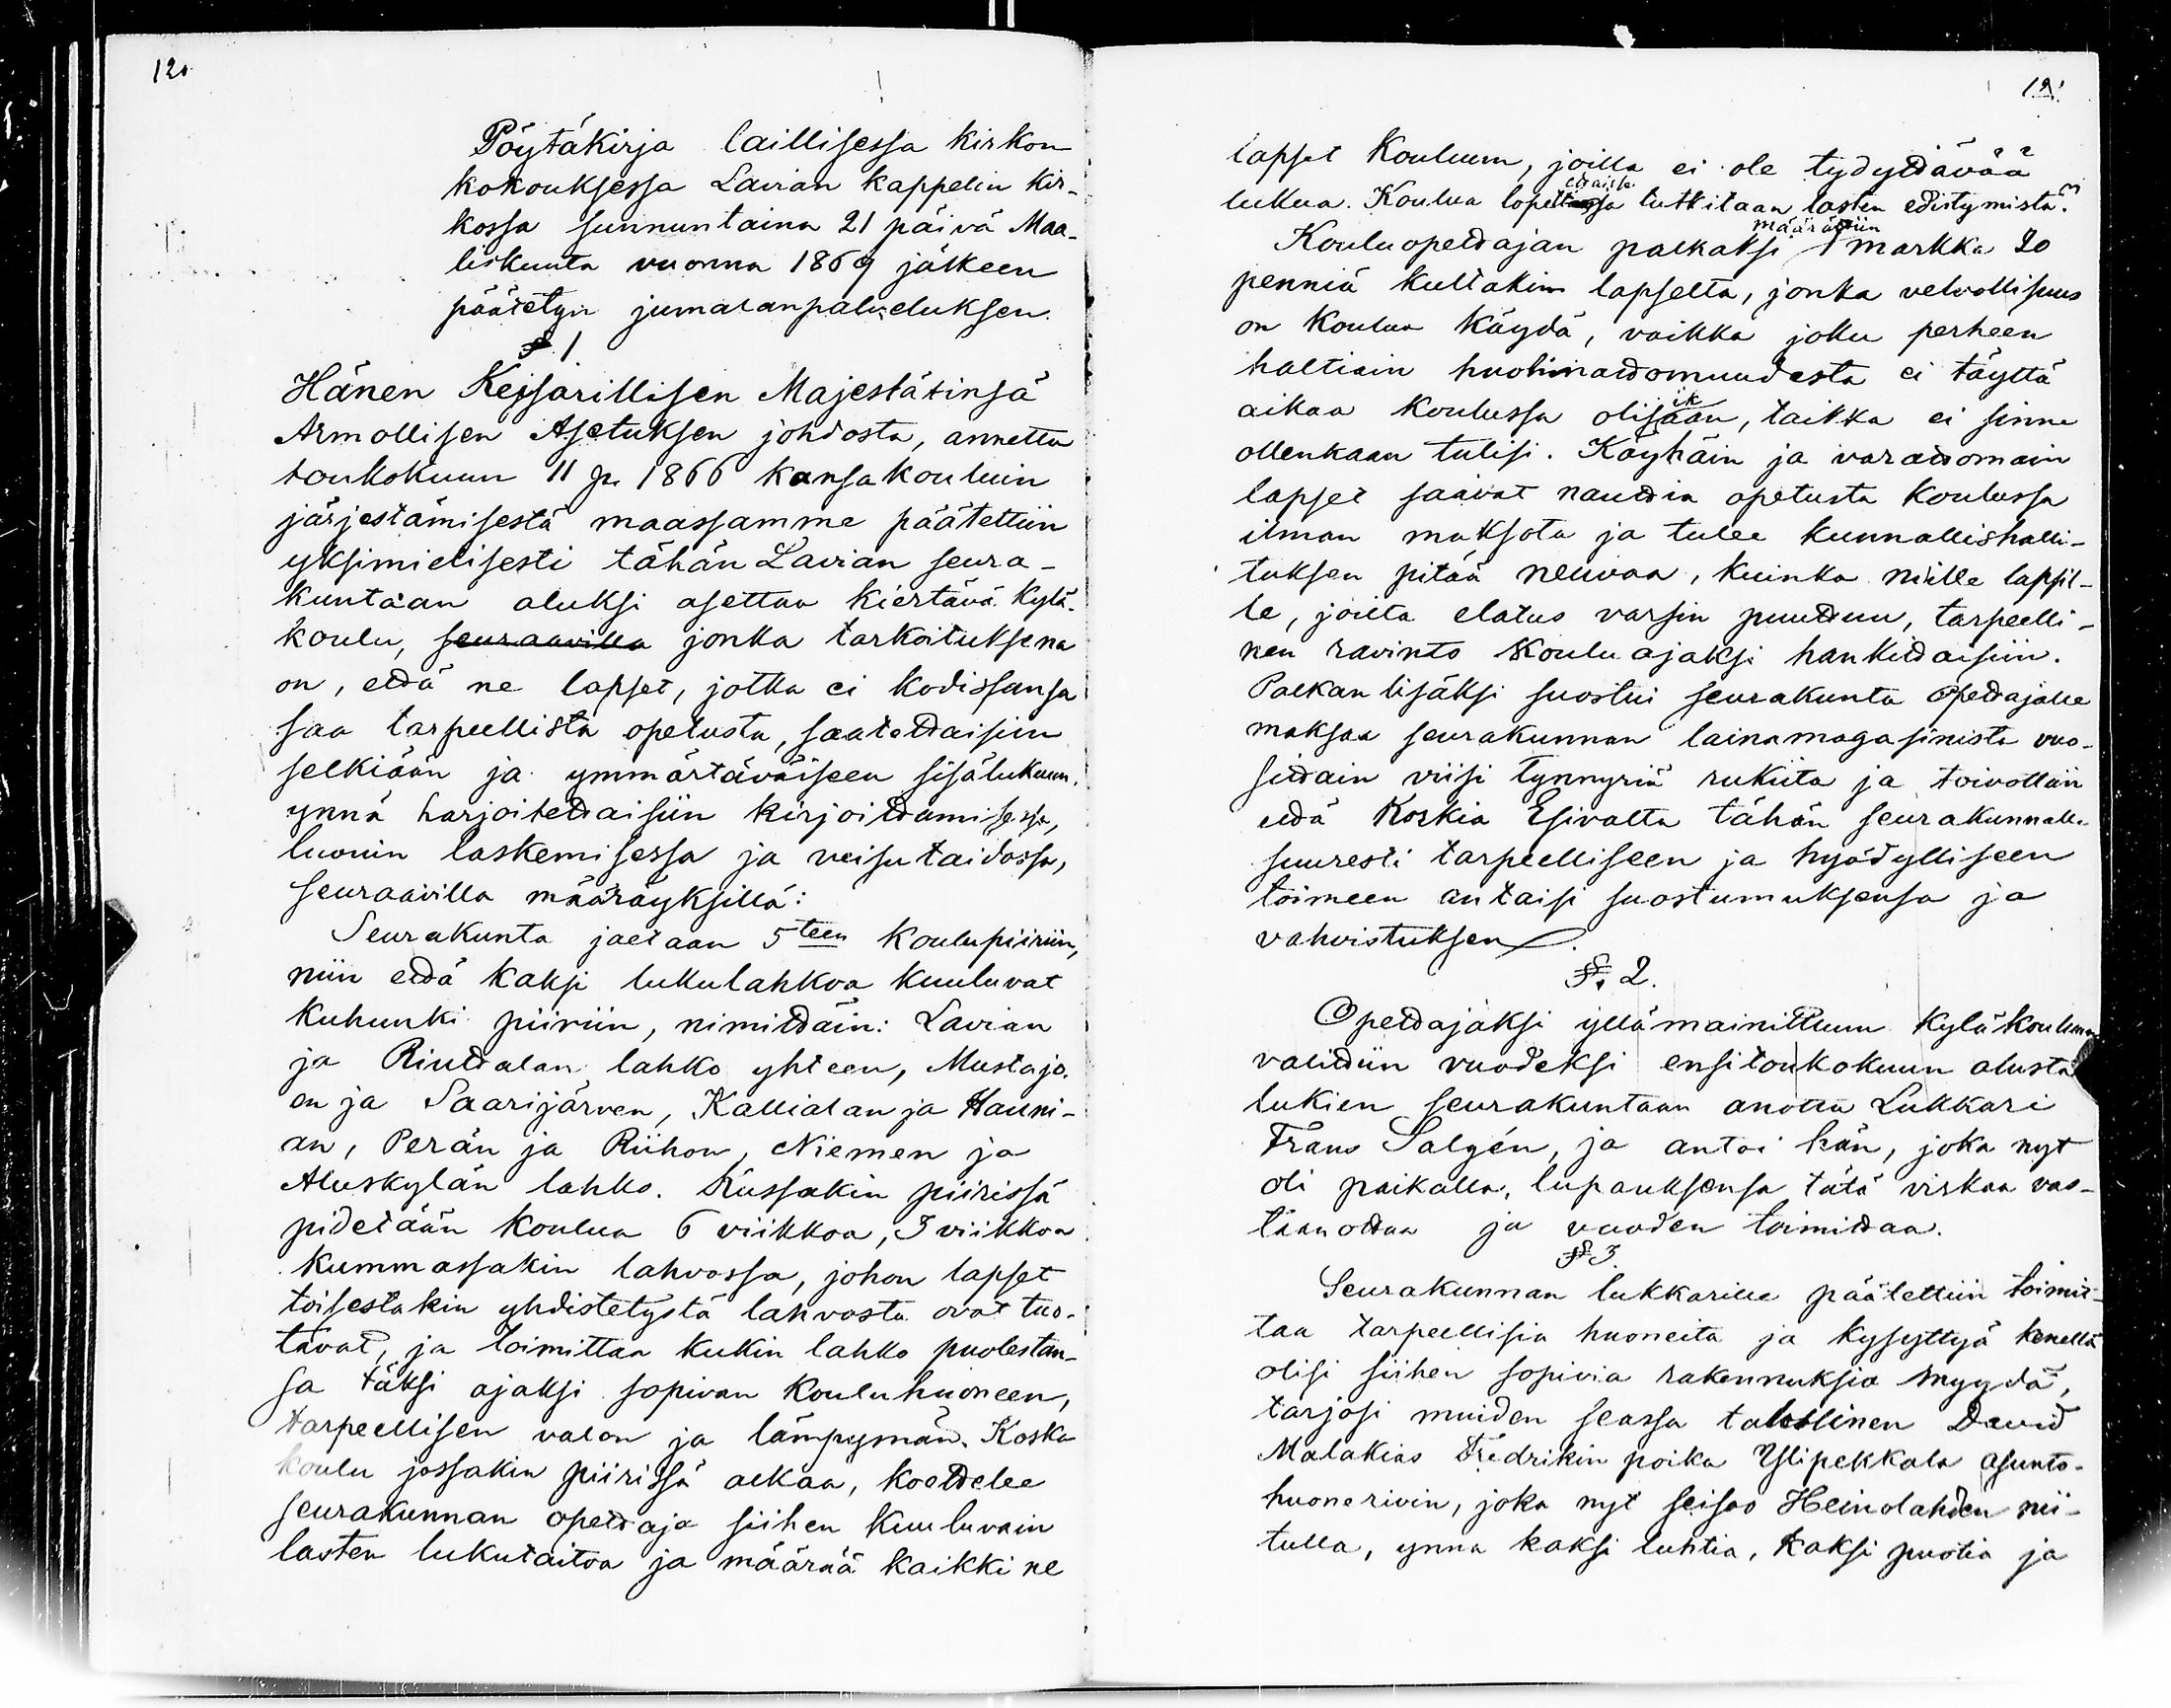 120
Pöytäkirja laillisessa kirkon
kokouksessa Lavian kappelin kir-
kossa sunnuntaina 21 päivä Maa-
liskuuta vuonna 1869 jälkeen
päätetyn jumalanpalveluksen.
§. 1
Hänen Keisarillisen Majestätinsä
Armollisen Asetuksen johdosta, annettu
toukokuun 11 p. 1866 kansakouluin
järjestämisestä maassamme päätettiin
yksimielisesti tähän Lavian seura-
kuntaan aluksi asettaa kiertävä kylä-
koulu, seuraavilla jonka tarkoituksena
on, että ne lapset, jotka ei kodissansa
saa tarpeellista opetusta, saatettaisiin
selkiään ja ymmärtäväiseen sisälukuun,
ynnä harjoitettaisiin kirjoittamisessa,
luvuin laskemisessa ja veisutaidossa,
seuraavilla määräyksillä:
Seurakunta jaetaan 5teen koulupiiriin,
niin että kaksi lukulahkoa kuuluvat
kuhunki piiriin, nimittäin: Lavian
ja Riuttalan lahko yhteen, Mustajo-
en ja Saarijärven, Kallialan ja Hauni-
an, Perän ja Riihon, Niemen ja
Aluskylän lahko. Kussakin piirissä
pidetään koulua 6 viikkoa, 3 viikkoa
kummassakin lahvossa, johon lapset
toisestakin yhdistetystä lahvosta ovat tuo-
tavat, ja toimittaa kukin lahko puolestan-
sa täksi ajaksi sopivan kouluhuoneen,
tarpeellisen valon ja lämpymän. Koska
koulu jossakin piirissä alkaa, koettelee
seurakunnan opettaja siihen kuuluvain
lasten lukutaitoa ja määrää kaikki ne
121
lapset kouluun, joilla ei ole tydyttävää
lukua. Koulua lopettaissa tutkitaan lasten edistymistä.
Kouluopettajan palkaksi määrättiin 1 markka 20
penniä kultakin lapselta, jonka velvollisuus
on koulua käydä, vaikka joku perheen
haltiain huolimattomuudesta ei täyttä
aikaa koulussa olisikaan, taikka ei sinne
ollenkaan tulisi. Köyhäin ja varattomain
lapset saavat nauttia opetusta koulussa
ilman maksota ja tulee kunnallishalli-
tuksen pitää neuvoa, kuinka niille lapsil-
le, joilta elatus varsin puuttuu, tarpeelli-
nen ravinto kouluajaksi hankittaisiin.
Palkan lisäksi suostui seurakunta opettajalle
maksaa seurakunnan lainamagasinista vuo-
sittain viisi tynnyriä rukiita ja toivottiin
että Korkia Esivalta tähän seurakunnalle
suuresti tarpeelliseen ja hyödylliseen
toimeen antaisi suostumuksensa ja
vahvistuksen.
§. 2.
Opettajaksi yllämainittuun kyläkouluun
valittiin vuodeksi ensitoukokuun alusta
lukien seurakuntaan anottu Lukkari
Frans Salgén, ja antoi hän, joka nyt
oli paikalla, lupauksensa tätä virkaa vas-
taanottaa ja vuoden toimittaa.
§ 3.
Seurakunnan lukkarille päätettiin toimit-
taa tarpeellisia huoneita ja kysyttyä kenellä
olisi siihen sopivia rakennuksia myydä,
tarjosi muiden seassa talollinen David
Malakias Fredrikin poika Ylipekkala asunto-
huonerivin, joka nyt seisoo Heinolahden nii-
tulla, ynnä kaksi luhtia, kaksi puotia ja